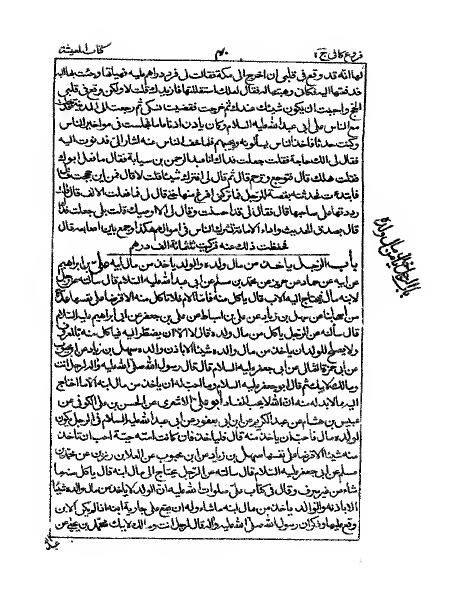 كتاب المعيشة
فروع كافى ج
لها انه قد وقع فى قلبى ان اخرج الى مكة فقالت لى فرد دراهم عليه فهيأتها وجئت بها اليه
فدفعتها اليه فكانى وهبتها له فقال لعلك استقللتها فازيدك قلت لا ولكن وقع فى قلبى
الحج واحببت ان يكون شيئك عندك ثم خرجت فقضيت نسكى ثم رجعت الى المدينة فدخلت
مع الناس على ابى عبد الله عليه السلام وكان ياذن اذنا عاما فجلست فى مواخير الناس
وكنت حدثا فاخذ الناس يسألونه ويجيبهم فلما خف الناس عنه اشار الى فدنوت اليه
فقال لى الك حاجة فقلت جعلت فداك انا عبد الرحمن بن سيابة فقال ما فعل ابوك
فقلت هلك قال فتوجع وترحم قال ثم قال لى افترك شيئا قلت لا قال فمن اين حججت قال
فابتدأت فحدثته بقصة الرجل فما تركنى افرغ منها حتى قال لى فما فعلت الالف قال قلت
رددتها على صاحبها قال فقال لى قد احسنت وقال لى الا اوصيك قلت بلى جعلت فداك
قال بصدق الحديث واداء الامانة تشرك الناس فى اموالهم هكذا وجمع بين اصابعه قال
فحفظت ذلك عنه فزكيت ثلثمائة الف درهم
باب الرجل ياخذ من مال ولده والوالد ياخذ من مال ابيه على بن ابراهيم
عن ابيه عن حماد عن حريز عن محمد بن مسلم عن ابى عبد الله عليه السلام قال سألته عن رجل
لابنه مال فيحتاج اليه الاب قال ياكل منه فاما الام فلا تاكل منه الا قرضا على نفسها عدة
من اصحابنا عن سهل بن زياد عن على بن اسباط عن على بن جعفر عن ابى ابراهيم عليه السلام
قال سألته عن الرجل ياكل من مال ولده قال لا الا ان يضطر اليه فياكل منه بالمعروف
ولا يصلح للولد ان ياخذ من مال والده شيئا الا باذن والده سهل بن زياد عن ابن محبوب
عن ابى حمزة الثمالى عن ابى جعفر عليه السلام قال قال رسول الله صلى الله عليه واله لرجل انت
ومالك لابيك ثم قال ابو جعفر عليه السلام وما احب له ان ياخذ من مال ابنه الا ما احتاج
اليه مما لا بد له منه ان الله لا يحب الفساد ابو على الاشعرى عن الحسن بن على الكوفى عن
عبيس بن هشام عن عبد الكريم عن ابن ابى يعفور عن ابى عبد الله عليه السلام فى الرجل يكون
لولده مال فاحب ان ياخذ منه قال فلياخذ فان كانت امه حية فما احب ان تاخذ
منه شيئا الا قرضا على نفسها سهل بن زياد عن ابن محبوب عن العلاء بن رزين عن محمد بن
مسلم عن ابى جعفر عليه السلام قال سألته عن الرجل يحتاج الى مال ابنه قال ياكل منه ما
شاء من غير سرف وقال فى كتاب على صلوات الله عليه ان الولد لا ياخذ من مال والده شيئا
الا باذنه والوالد ياخذ من مال ابنه ما شاء وله ان يقع على جارية ابنه اذا لم يكن الابن
وقع عليها وذكر ان رسول الله صلى الله عليه واله قال لرجل انت ومالك لابيك محمد بن يحيى عن